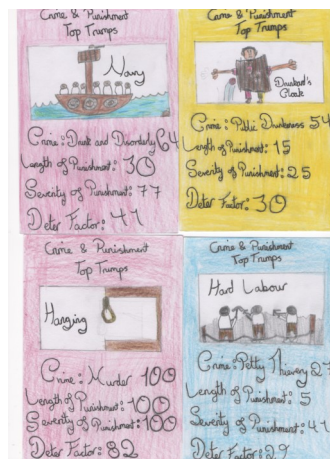 Crime & Punishment
Top Trumps
Navy
Crime: Drunk and Disorderly 64
Length of Punishment: 30
Severity of Punishment: 77
Deter Factor: 41
Crime & Punishment
Top Trumps
Drunkard's
Cloak
Crime: Public Drunkenness 54
Length of Punishment: 15
Severity of Punishment: 25
Deter Factor: 30
Crime & Punishment
Top Trumps
Hanging
Crime: Murder 100
Length of Punishment: 100
Severity of Punishment: 100
Deter Factor: 82
Crime & Punishment
Top Trumps
Hard Labour
Crime: Petty Thievery 27
Length of Punishment: 5
Severity of Punishment: 41
Deter Factor: 29